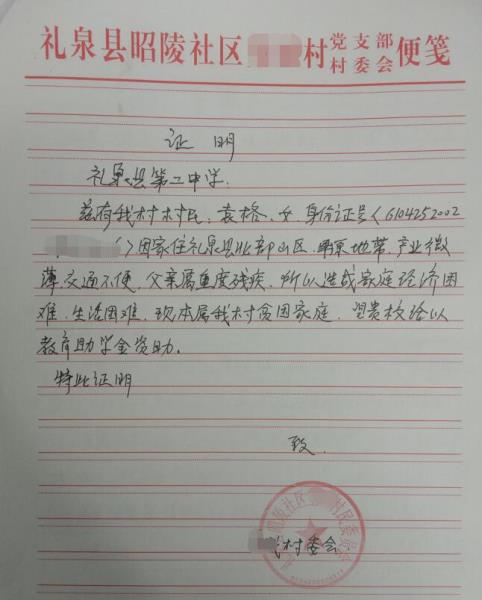 礼泉县昭陵社区 村党支部村委会便笺
证明
礼泉县第二中学.
兹有我村村民,袁格,女,身份证号(6104252002
)因家住礼泉县北部山区,地带,产业微
薄交通不便,父亲属重度残疾,所以造成家庭经济困
难,生活困难,现本属我村贫困家庭,望贵校给以
教育助学金资助。
特此证明
致.
村委会
昭陵社区 村民委员会